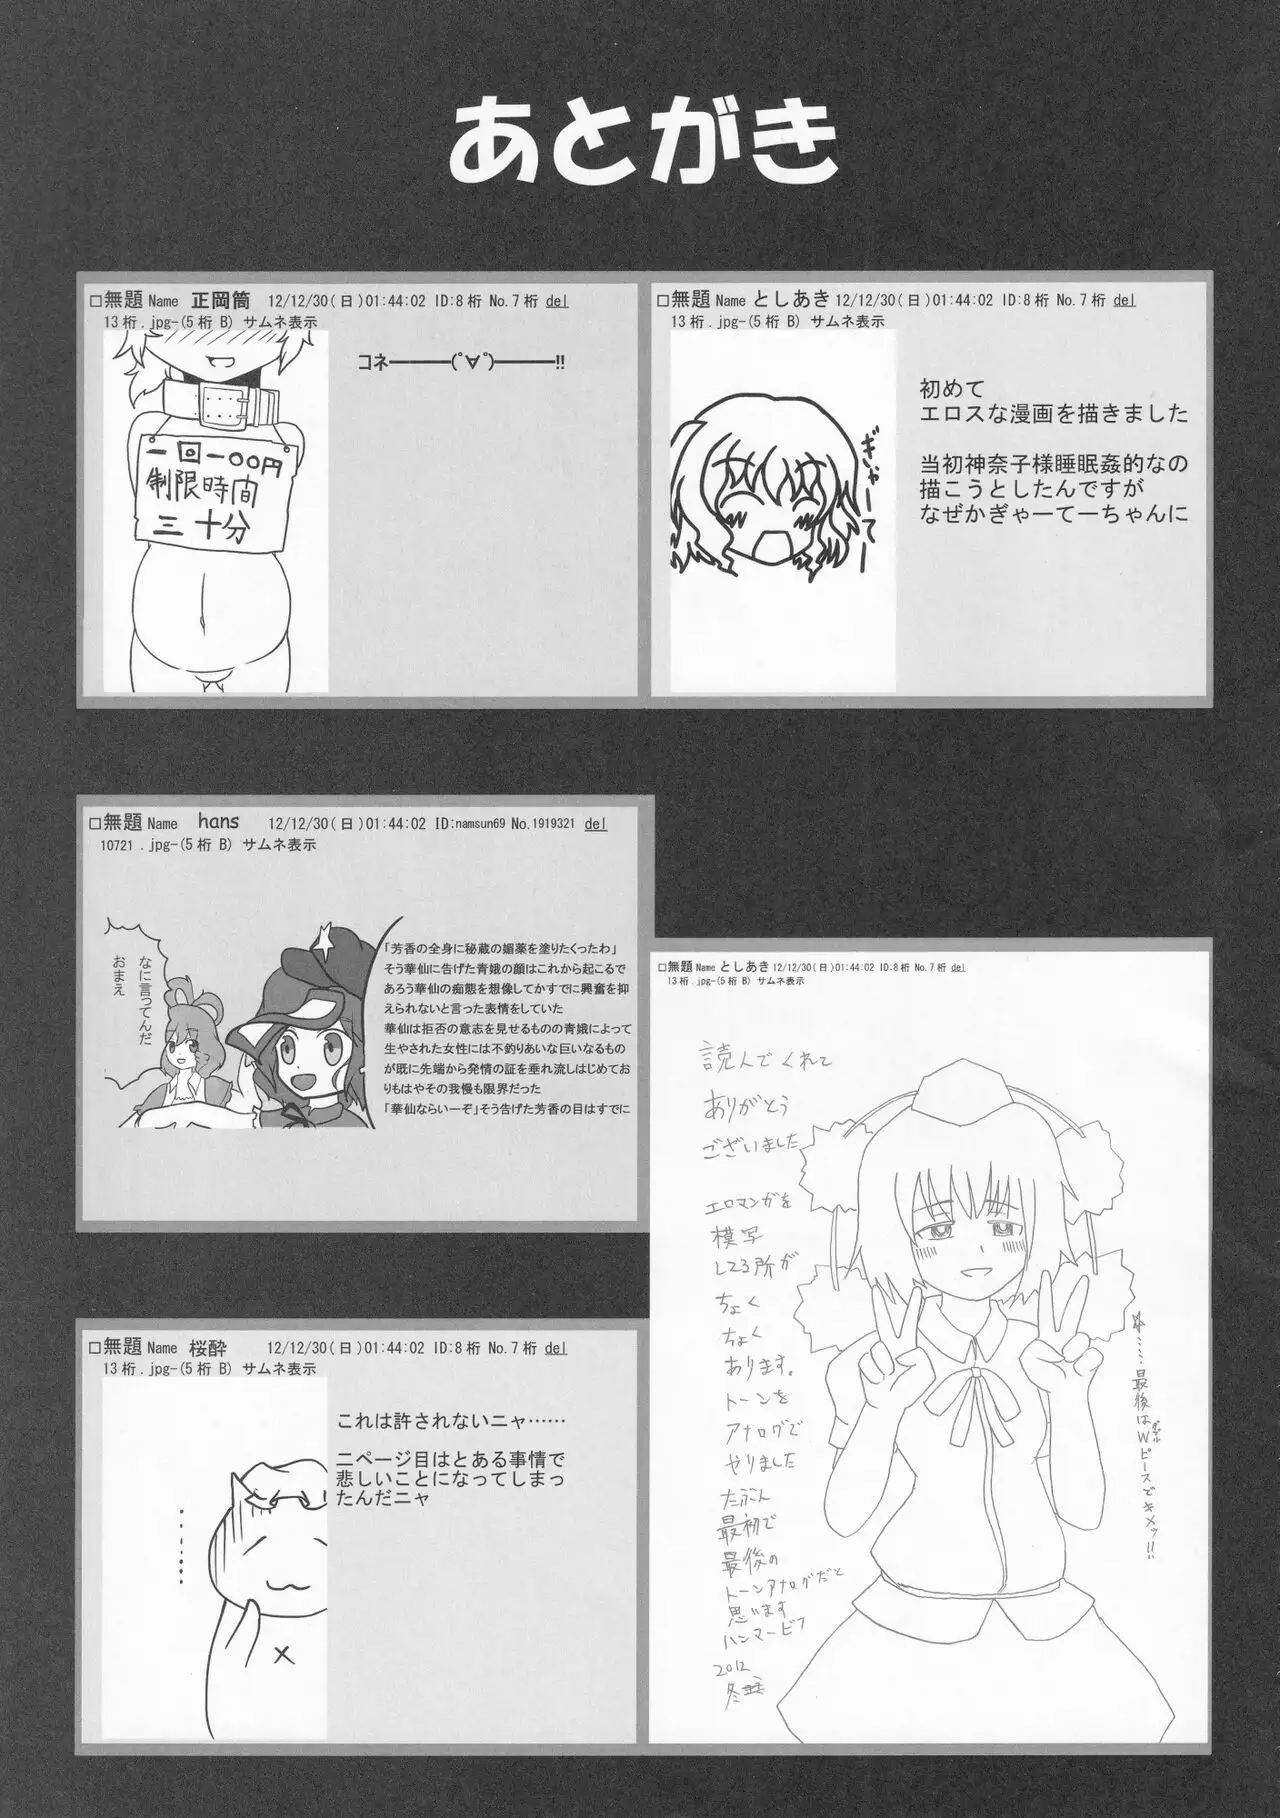 あとがき
□無題 Name 正岡筒 12/12/30(日)01:44:02 ID:8桁 No.7桁 del
13桁.jpg-(5桁 B) サムネ表示
コネ━━━━(ﾟ∀ﾟ)━━━━!!
一回一〇〇円
制限時間
三十分
□無題 Name としあき 12/12/30(日)01:44:02 ID:8桁 No.7桁 del
13桁.jpg-(5桁 B) サムネ表示
ぎゃーてー
初めて
エロスな漫画を描きました
当初神奈子様睡眠姦的なの
描こうとしたんですが
なぜかぎゃーてーちゃんに
□無題 Name hans 12/12/30(日)01:44:02 ID:namsun69 No.1919321 del
10721 .jpg-(5桁 B) サムネ表示
なに言ってんだ
おまえ
「芳香の全身に秘蔵の媚薬を塗りたくったわ」
そう華仙に告げた青娥の顔はこれから起こるで
あろう華仙の痴態を想像してかすでに興奮を抑
えられないと言った表情をしていた
華仙は拒否の意志を見せるものの青娥によって
生やされた女性には不釣りあいな巨いなるもの
が既に先端から発情の証を垂れ流しはじめてお
りもはやその我慢も限界だった
「華仙ならいーぞ」そう告げた芳香の目はすでに
□無題 Name としあき 12/12/30(日)01:44:02 ID:8桁 No.7桁 del
13桁.jpg-(5桁 B) サムネ表示
読んでくれて
ありがとう
ございました
エロマンガを
模写
してる所が
ちょく
ちょく
あります。
トーンを
アナログで
やりました
たぶん
最初で
最後の
トーンアナログだと
思います
ハンマービフ
2012
冬
……最後はWピースでキメッ!!
ダブル
□無題 Name 桜酔 12/12/30(日)01:44:02 ID:8桁 No.7桁 del
13桁.jpg-(5桁 B) サムネ表示
これは許されないニャ……
二ページ目はとある事情で
悲しいことになってしまっ
たんだニャ
……